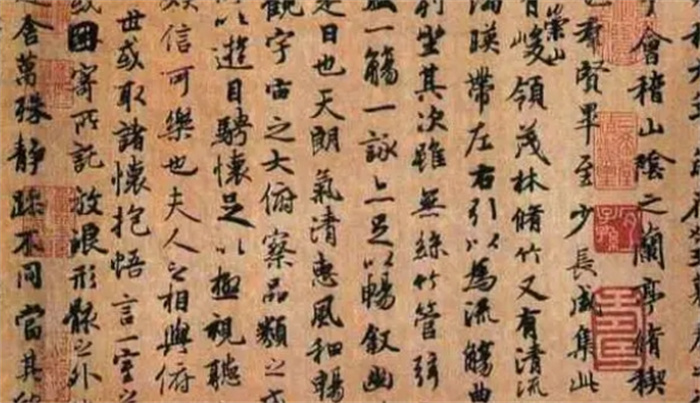 會稽山陰之蘭亭脩稧
也羣賢畢至少長咸集此
有崇山峻領茂林脩竹又有清流
湍暎帶左右引以為流觴曲
列坐其次雖無絲竹管弦
一觴一詠亦足以暢敘幽
是日也天朗氣清惠風和暢
觀宇宙之大俯察品類之
以遊目騁懷足以極視聽
娛信可樂也夫人之相與俯
世或取諸懷抱悟言一室之
或因寄所託放浪形骸之外
舍萬殊靜躁不同當其